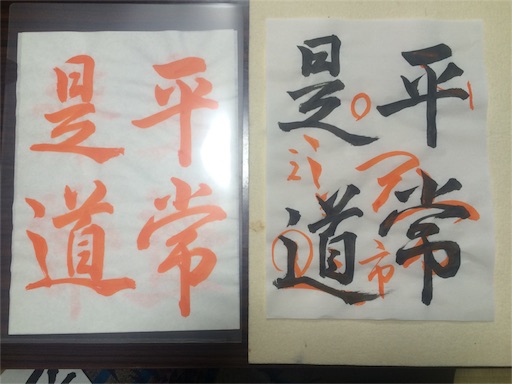 平常
是道
平常
是道
市